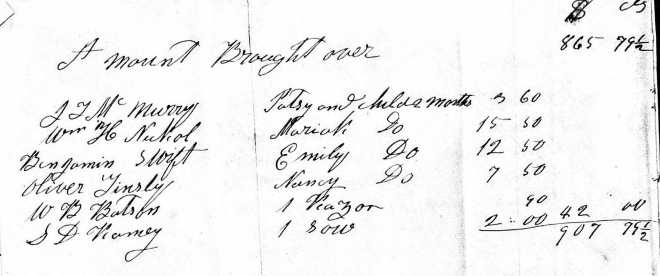 $ cts
Amount Brought over 865 79½
J T Mc Murry Patsy and child 2 months 3 60
Wm H Nickol Mariah Do 15 50
Bengamin Swift Emily Do 12 50
Oliver Tinsly Nancy Do 7 50
W B Batson 1 Razor 90
S D Kamey 1 Sow 2 00 42 00
907 79½